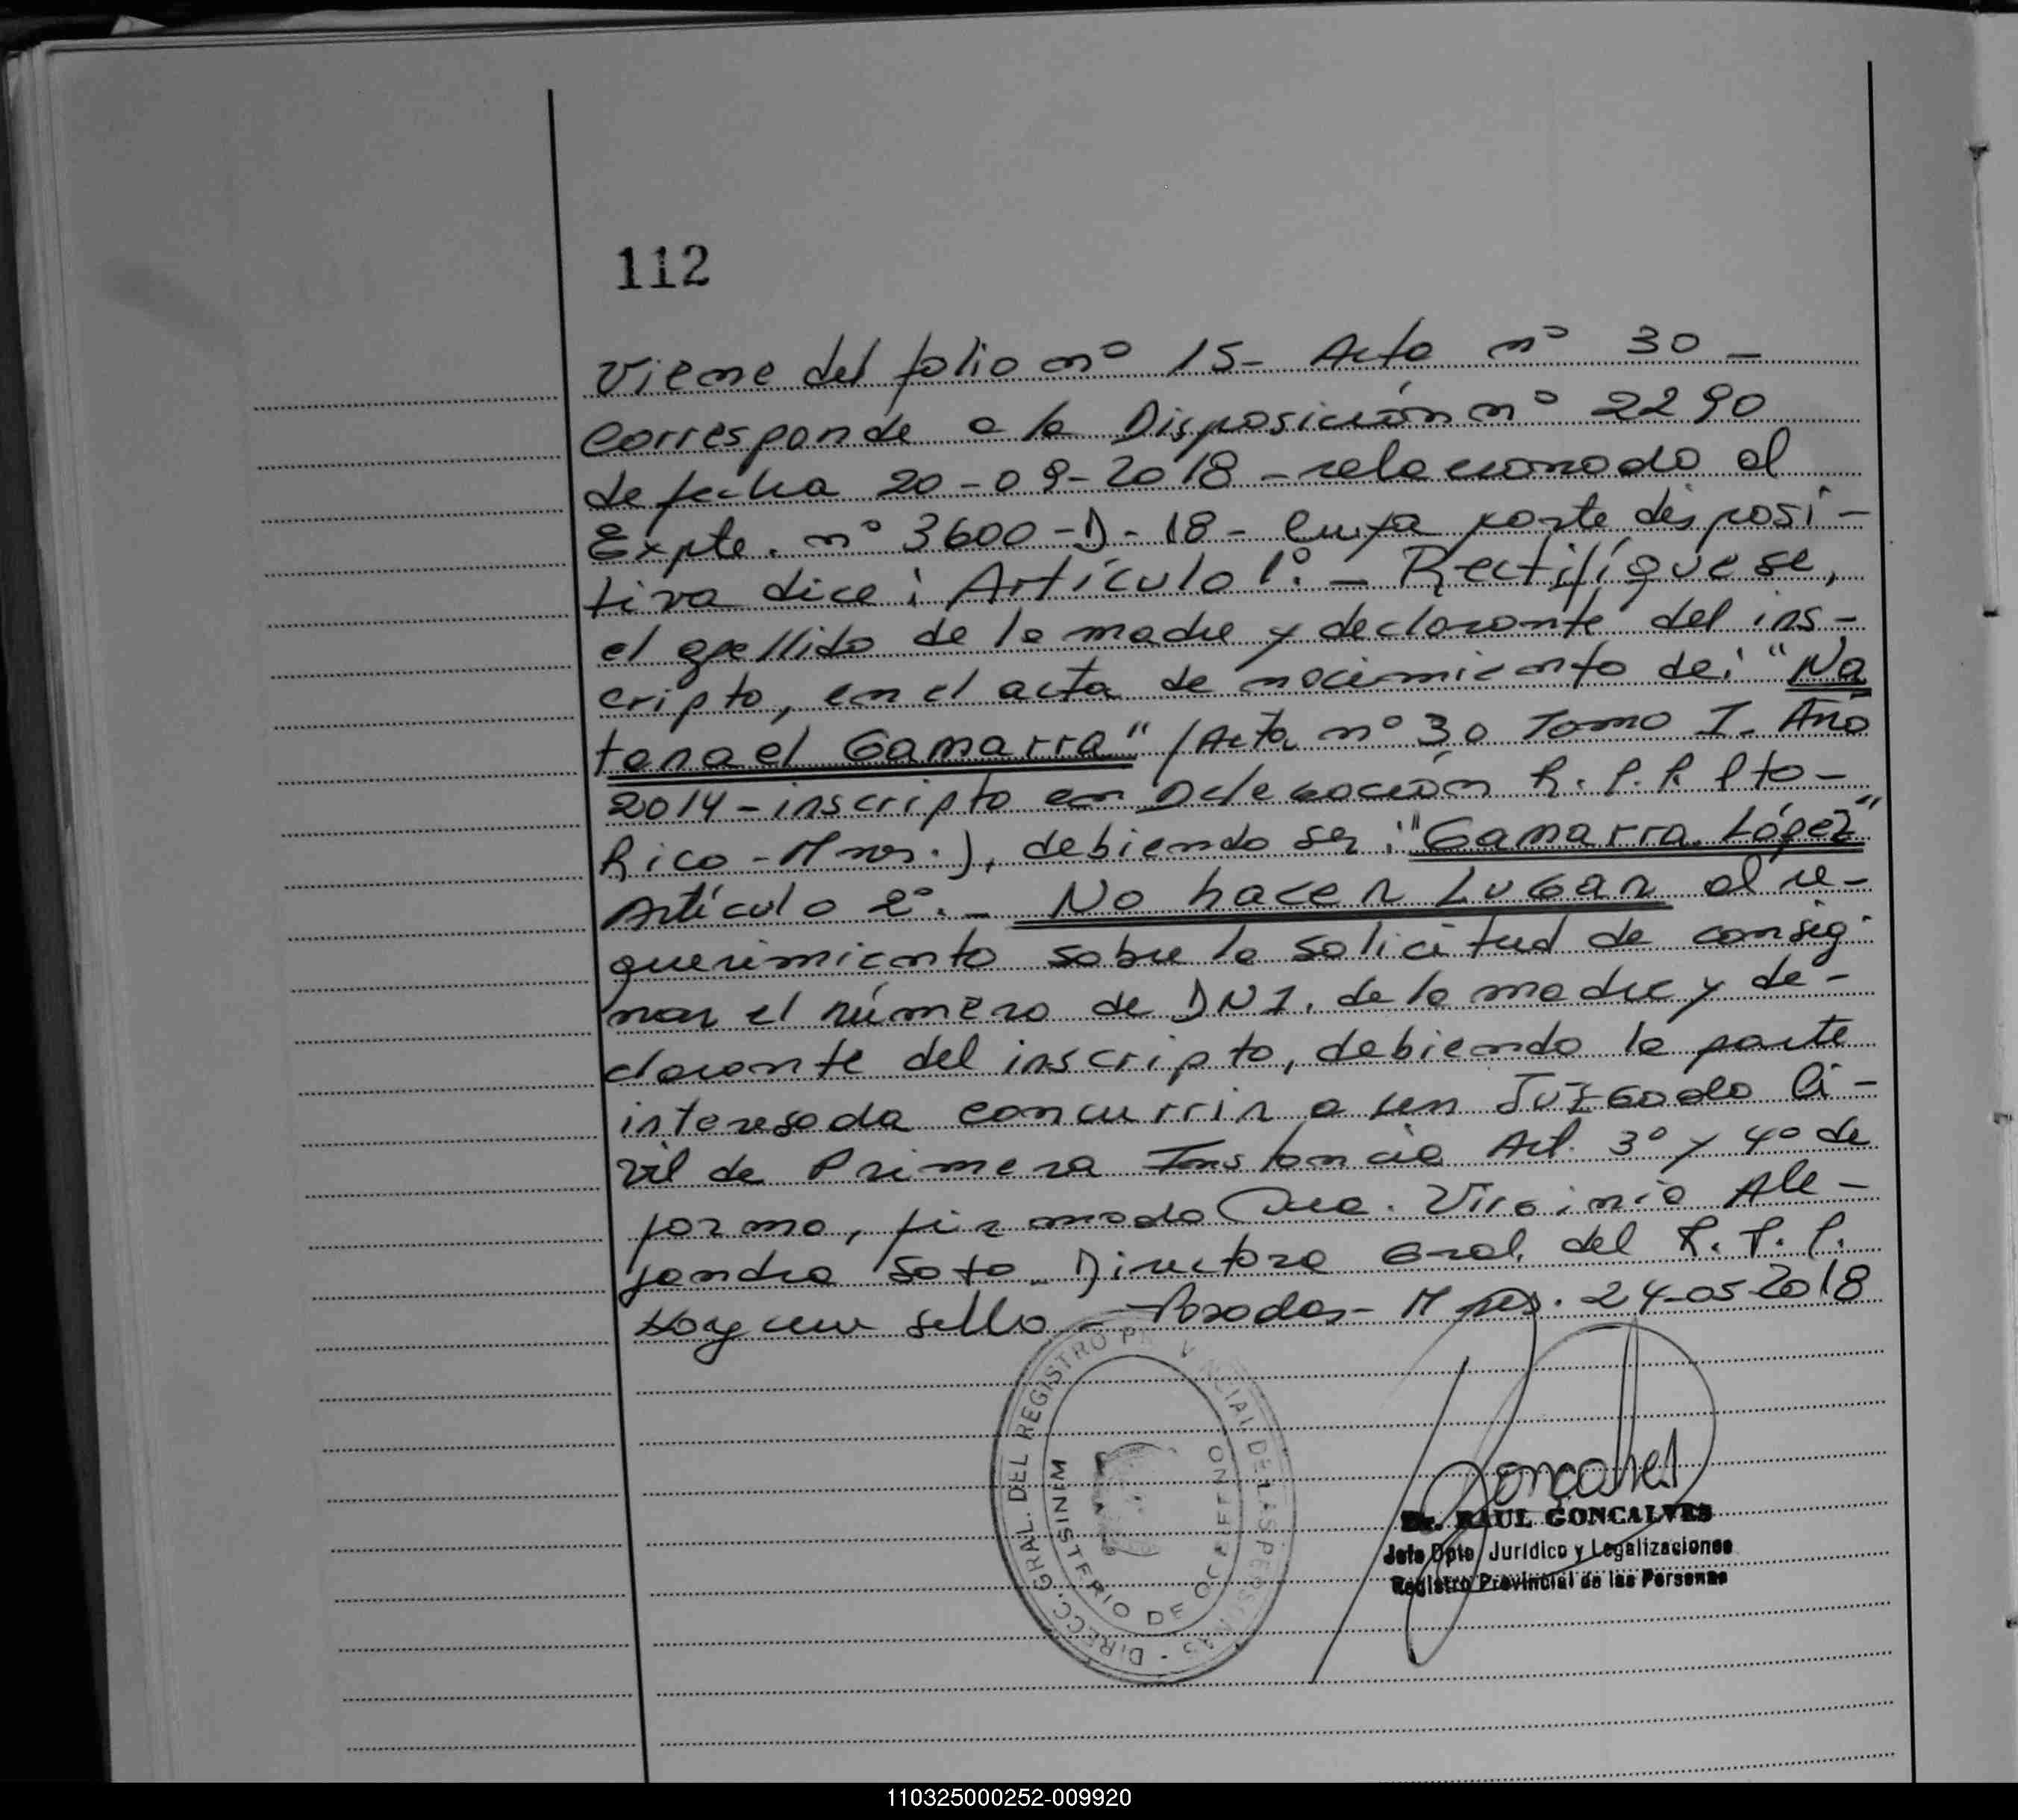 112
Viene del folio nº 15- Acta nº 30 -
Corresponde a la Disposición nº 2290
de fecha 20-09-2018 - relacionado al
Expte. nº 3600-D-18- Cuya parte disposi-
tiva dice: Artículo 1º.- Rectifíquese,
el apellido de la madre y declarante del ins-
cripto, en el acta de nacimiento de: "Na
tanael Gamarra" (Acta nº 30 Tomo I. Año
2014-inscripto en Delegación R.P.P. Pto-
Rico-Mnes.), debiendo ser: "Gamarra López"
Artículo 2º.- No hacer Lugar al re-
querimiento sobre la solicitud de consig-
nar el número de DNI. de la madre y de-
clarante del inscripto, debiendo la parte
interesada concurrir a un Juzgado Ci-
vil de Primera Instancia Art. 3º y 4º de
forma, firmado Dra. Virginia Ale-
jandra Soto- Directora Gral. del R.P.P.
Hay un sello - Posadas- Mnes. 24-05-2018
DIRECC. GRAL. DEL REGISTRO PROVINCIAL DE LAS PERSONAS -
MINISTERIO DE GOBIERNO
Goncalves
Dr. RAUL GONCALVES
Jefe Dpto Jurídico y Legalizaciones
Registro Provincial de las Personas
110325000252-009920